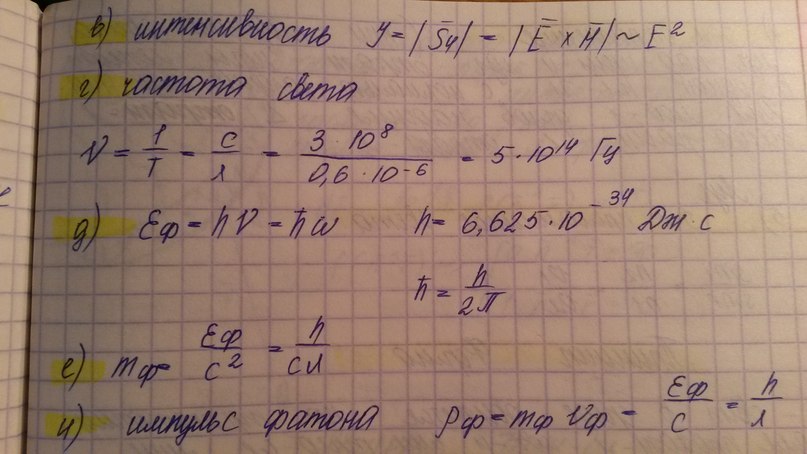 в) интенсивность У = |S̄у| = |Ē × H̄| ~ E²
г) частота света
ν = 1/T = c/λ = 3 · 10⁸ / 0,6 · 10⁻⁶ = 5 · 10¹⁴ Гц
д) Eф = hν = ħω h = 6,625 · 10⁻³⁴ Дж · с
ħ = h/2π
е) mф = Eф/c² = h/cλ
и) импульс фатона pф = mф vф = Eф/c = h/λ